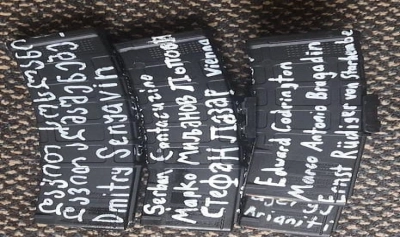 დავით სოსლანი
დავით
Dmitry Senyavin
Serban Cantacuzino
Марко Миљанов Попови
Стефан Лазар Vienna
Edward Codrington
Marco Antonio Bragadin
Ernst Rüdiger von
Arianiti